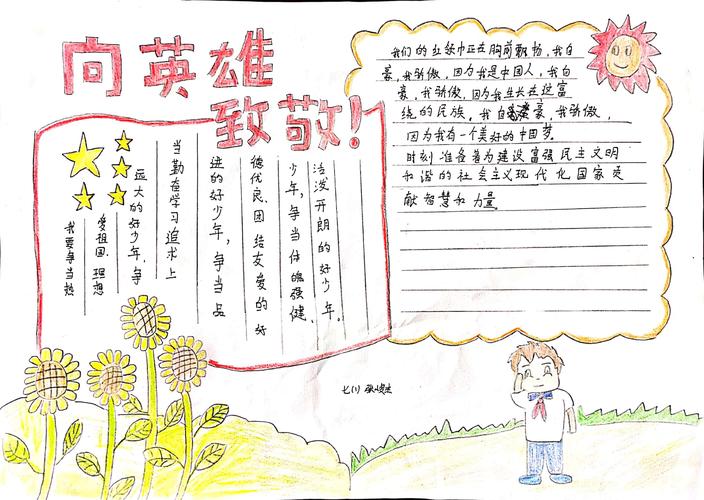 向英雄
致敬！
我要争当热
爱祖国、理想
远大的好少年、争
当勤奋学习追求上
进的好少年，争当品
德优良、团结友爱的好
少年，争当体魄强健、
活泼开朗的好少年。
我们的红领巾正在胸前飘扬，我自
豪，我骄傲，因为我是中国人，我自
豪，我骄傲，因为我生长在这富
饶的民族，我自豪，我骄傲，
因为我有一个美好的中国梦。
时刻准备着为建设富强民主文明
和谐的社会主义现代化国家贡
献智慧和力量
七(1)